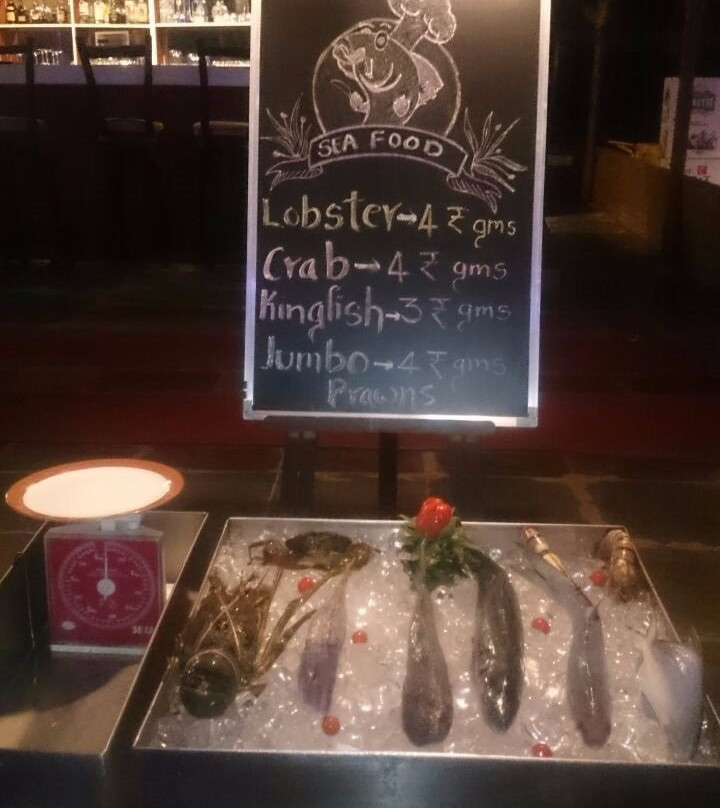 SEA FOOD
Lobster→4 ₹ gms
Crab→4 ₹ gms
Kinglish→3 ₹ gms
Jumbo→4 ₹ gms
Prawns